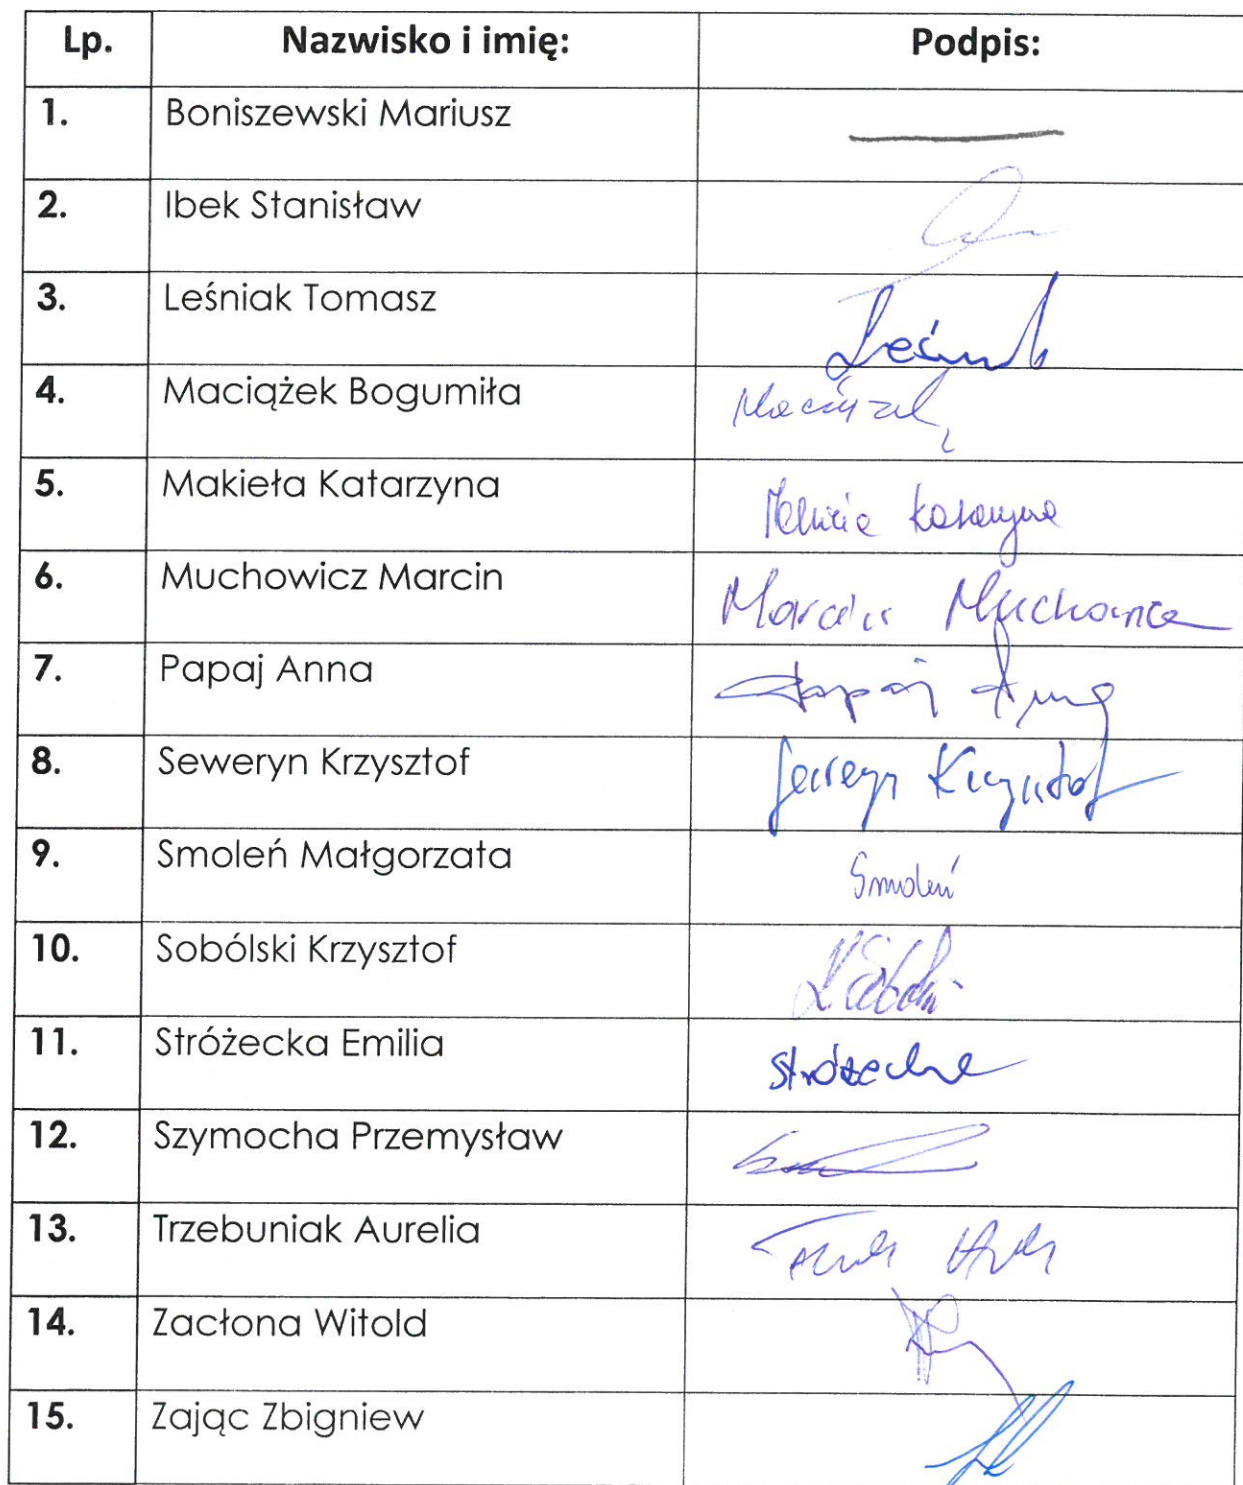 Lp. Nazwisko i imię: Podpis:
1. Boniszewski Mariusz
2. Ibek Stanisław
3. Leśniak Tomasz
4. Maciążek Bogumiła
5. Makieła Katarzyna
6. Muchowicz Marcin Marcin
7. Papaj Anna Papaj Anna
8. Seweryn Krzysztof Seweryn Krzysztof
9. Smoleń Małgorzata Smoleń
10. Sobólski Krzysztof
11. Stróżecka Emilia Stróżecka
12. Szymocha Przemysław
13. Trzebuniak Aurelia
14. Zacłona Witold
15. Zając Zbigniew